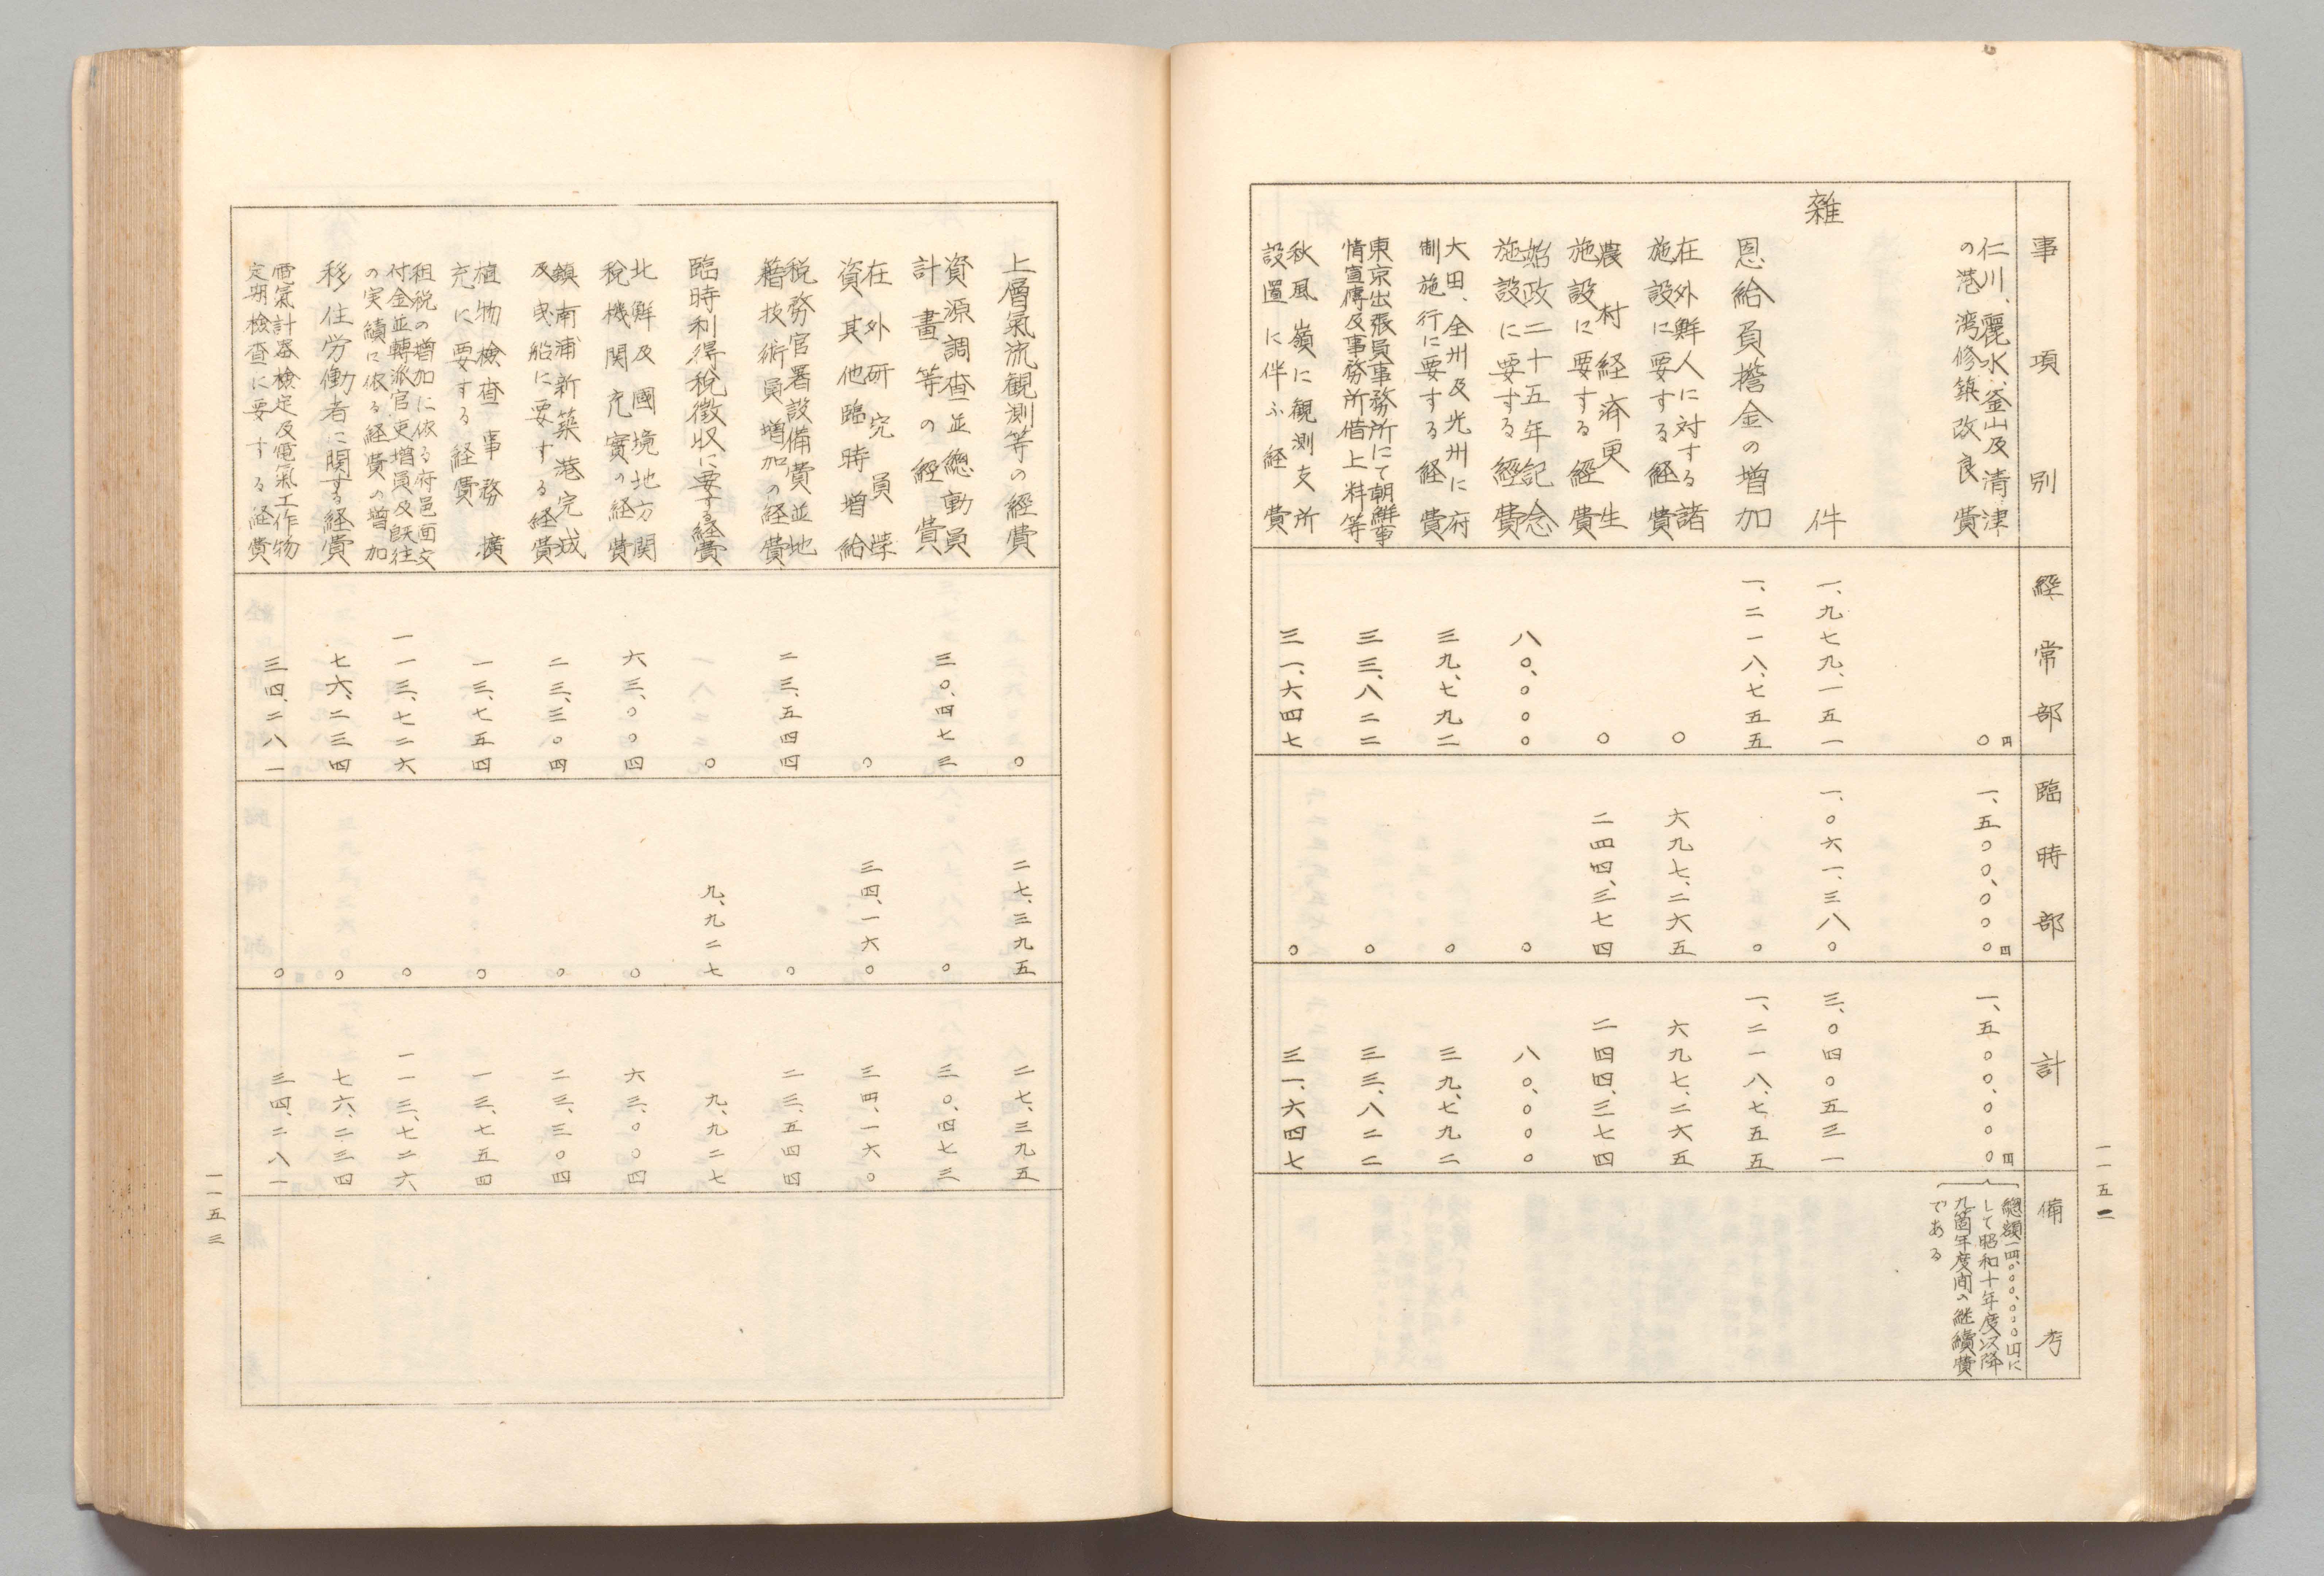 事項別
經常部
臨時部
計
備考
仁川、麗水、釜山及清津
の港湾修築改良費
〇円
一、五〇〇、〇〇〇円
一、五〇〇、〇〇〇円
総額一四、〇〇〇、〇〇〇円に
して昭和十年度以降
九箇年度間の継續費
である
雑件
一、九七九、一五一
一、〇六一、三八〇
三、〇四〇五三一
恩給負擔金の増加
一、二一八、七五五
〇
一、二一八、七五五
在外鮮人に対する諸
施設に要する経費
〇
六九七、二六五
六九七、二六五
農村経済更生
施設に要する經費
〇
二四四、三七四
二四四、三七四
始政二十五年記念
施設に要する經費
八〇、〇〇〇
〇
八〇、〇〇〇
大田、全州及光州に府
制施行に要する経費
三九、七九二
〇
三九、七九二
東京出張員事務所にて朝鮮事
情宣傳及事務所借上料等
三三、八二二
〇
三三、八二二
秋風嶺に観測支所
設置に伴ふ経費
三一、六四七
〇
三一、六四七
一一五二
上層氣流観測等の經費
〇
二七、三九五
二七、三九五
資源調査並總動員
計畫等の經費
三〇、四七三
〇
三〇、四七三
在外研究員俸
資其他臨時増給
〇
三四、一六〇
三四、一六〇
税務官署設備費並地
籍技術員増加の経費
二三、五四四
〇
二三、五四四
臨時利得稅徴収に要する経費
〇
九、九二七
九、九二七
北鮮及國境地方関
稅機関充實の経費
六三、〇〇四
〇
六三、〇〇四
鎮南浦新築港完成
及曳船に要する経費
二三、三〇四
〇
二三、三〇四
植物検査事務擴
充に要する経費
一三、七五四
〇
一三、七五四
租税の増加に依る府邑面交
付金並轉派官吏増員及既往
の実績に依る経費の増加
一一三、七二六
〇
一一三、七二六
移住労働者に関する経費
七六、二三四
〇
七六、二三四
電氣計器検定及電氣工作物
定期検査に要する経費
三四、二八一
〇
三四、二八一
一一五三